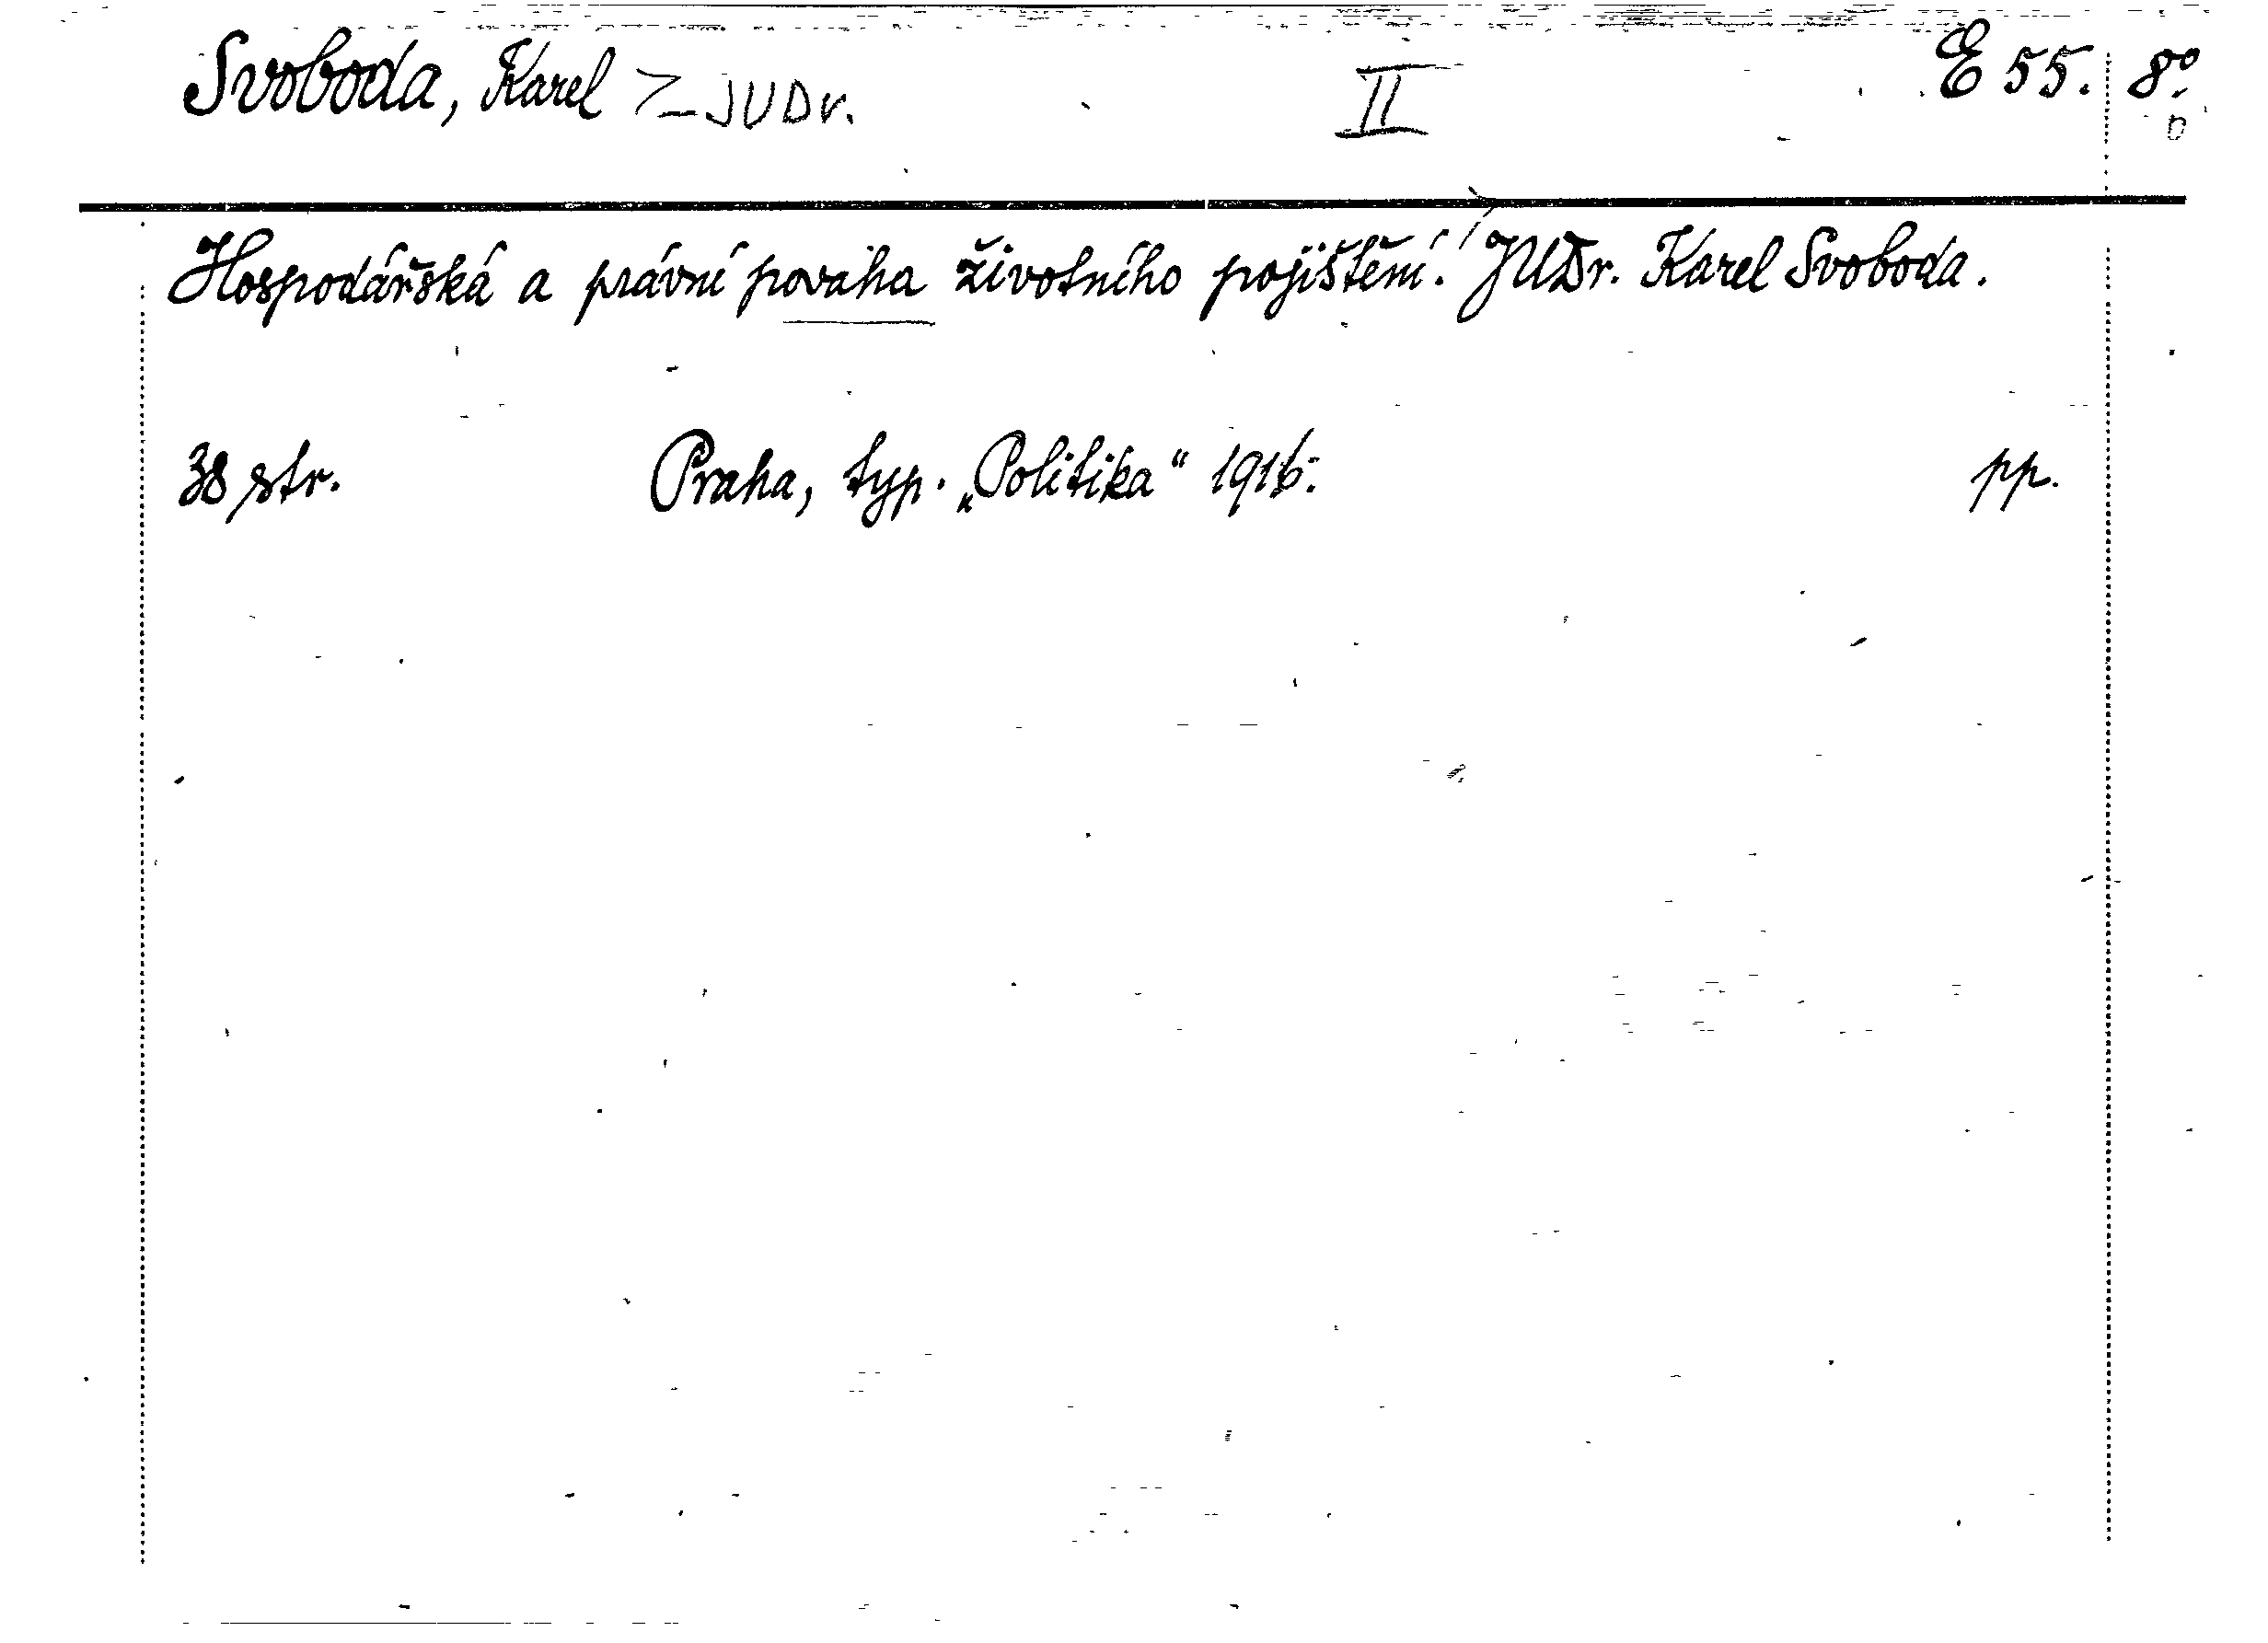 Svoboda, Karel JUDr. II E 55. 8º
Hospodářská a právní povaha životního pojištění. JUDr. Karel Svoboda.
38 str. Praha, typ. „Politika“ 1916. pp.